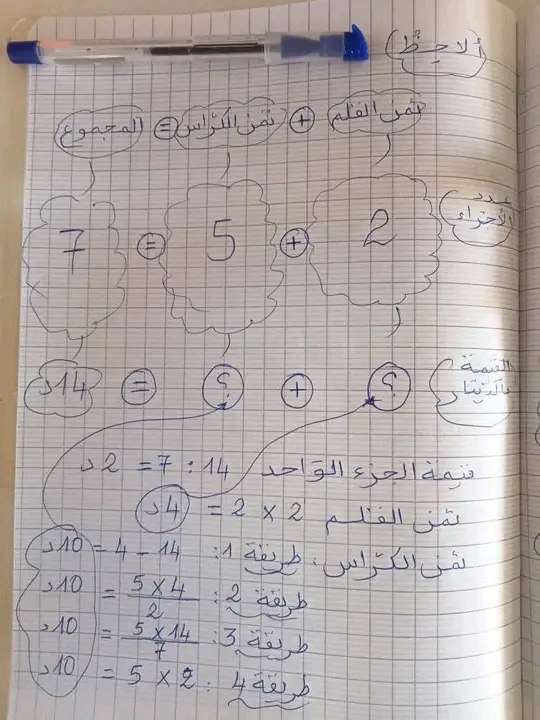 ألاحظ
ثمن القلم + ثمن الكرّاس = المجموع
عدد الأجزاء 2 + 5 = 7
القيمة بالدينار ؟ + ؟ = 14د
قيمة الجزء الواحد 14 : 7 = 2د
ثمن القلم 2 × 2 = 4د
ثمن الكرّاس: طريقة 1: 14 - 4 = 10د
طريقة 2: 5×4/2 = 10د
طريقة 3: 5×14/7 = 10د
طريقة 4: 2 × 5 = 10د